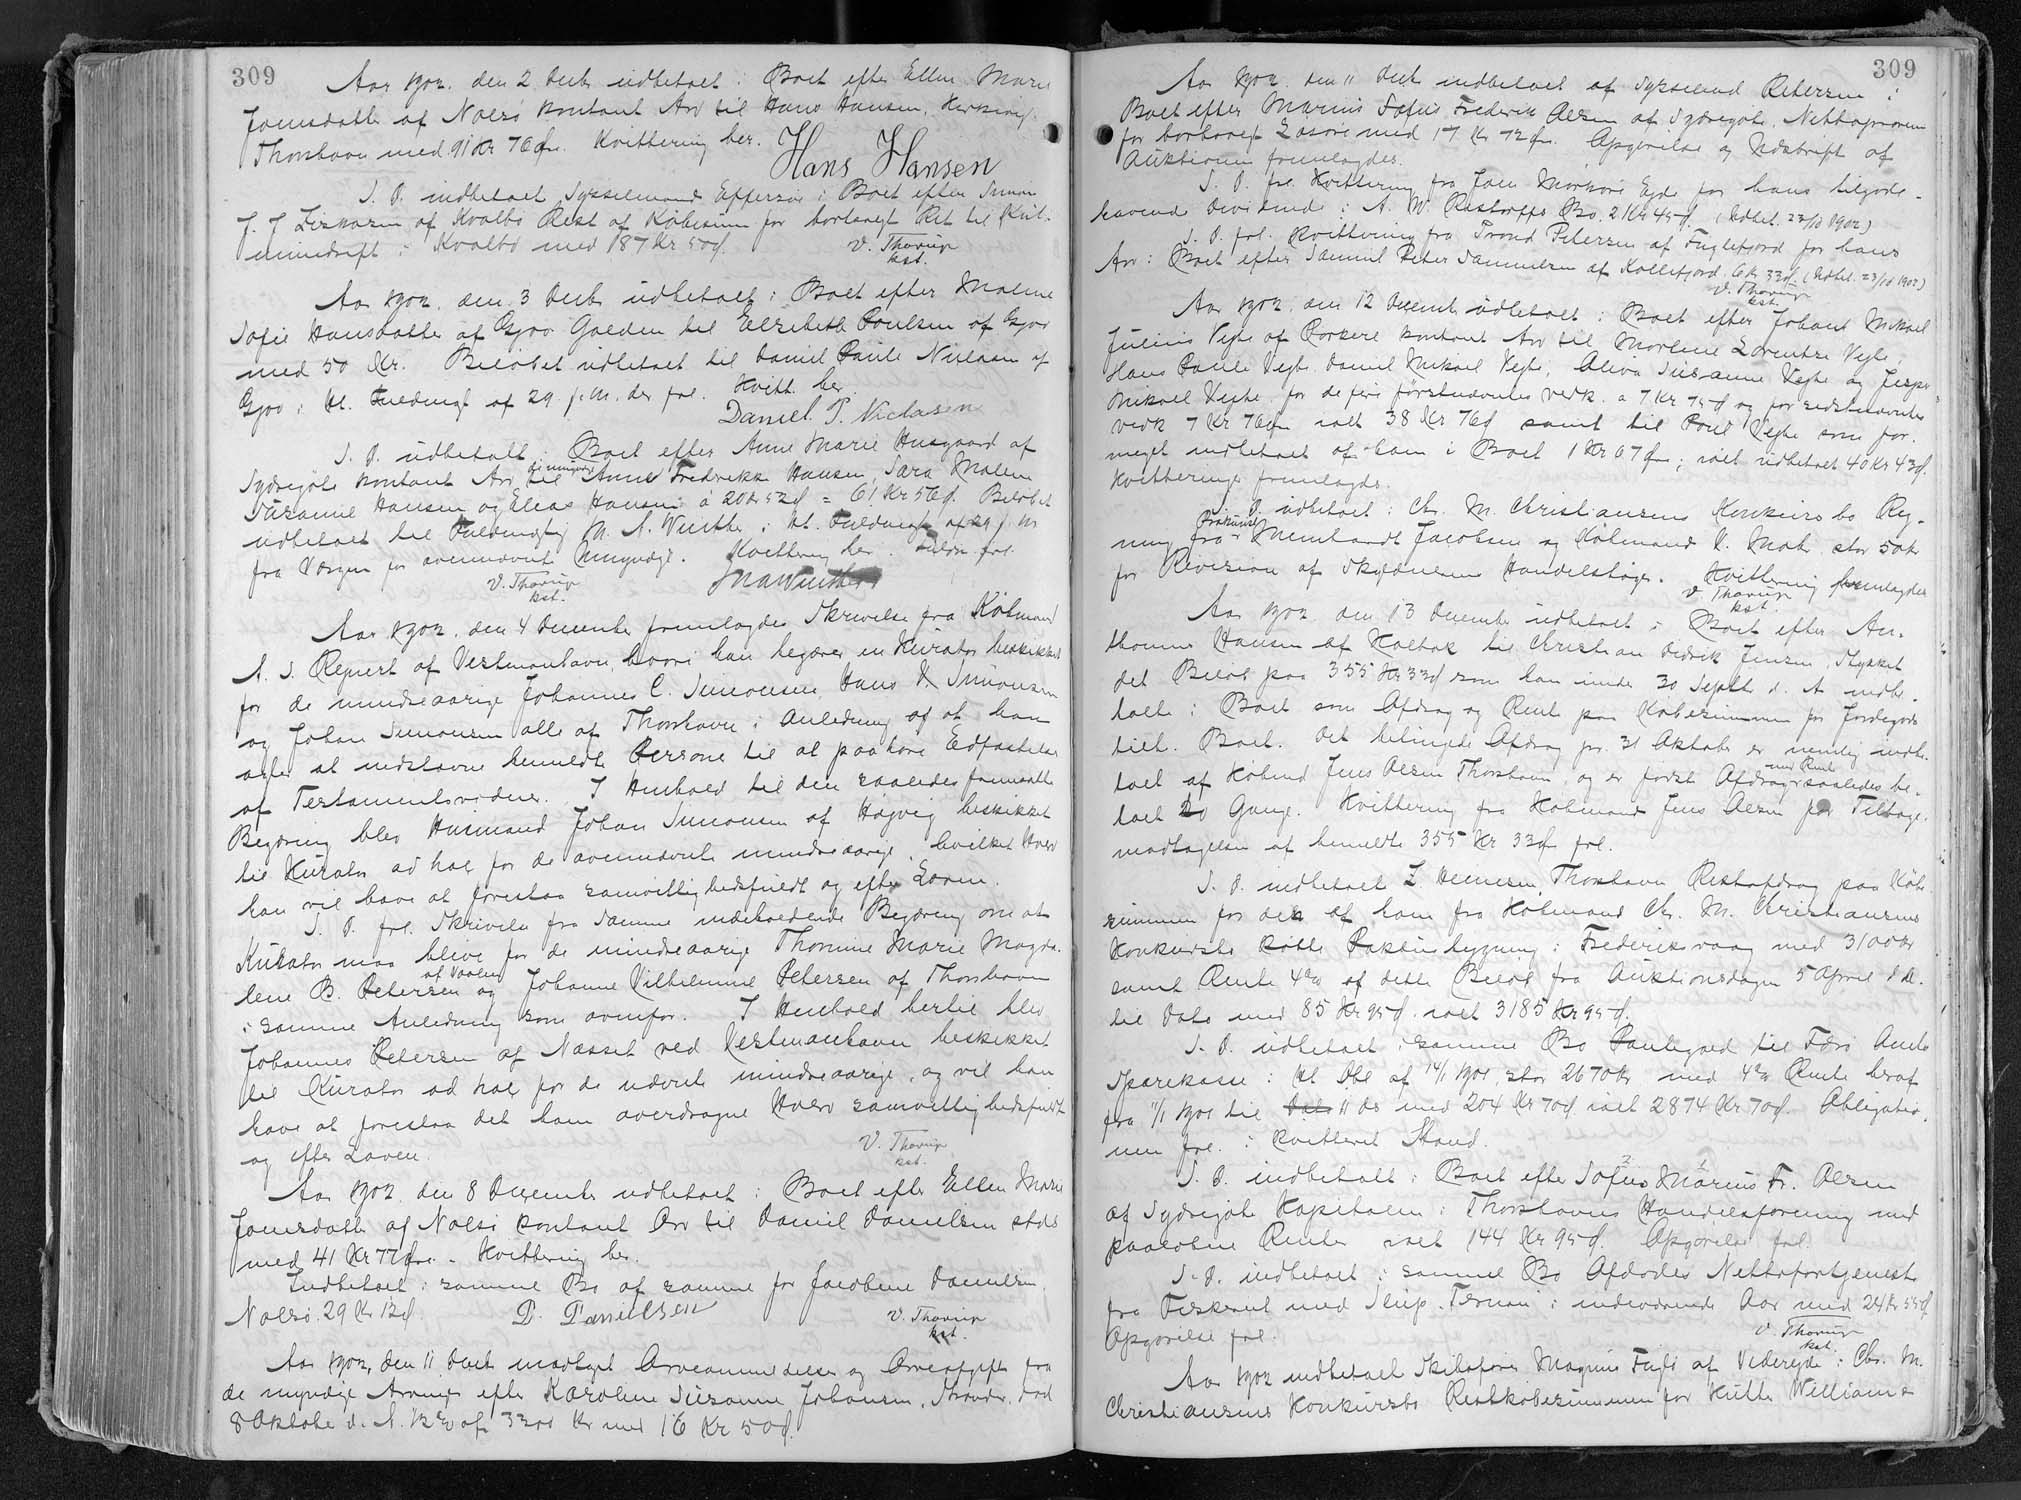 309
Aar 1902. den 2 Decb. udbetalt i Boet efter Ellen Marie
Joensdatter af Nolsö kontant Arv til Hans Hansen,
Thorshavn med 91 Kr 76 Øre. Kvittering her.
Hans Hansen
S. D. indbetalt Sysselmand Effersøe i Boet efter Simon
J. J. af Kvalbø Rest af Købesum for bortsolgt Ret til Kul-
minedrift i Kvalbø med 187 Kr 50 Ø.
V. Thorup
kst.
Aar 1902. den 3 Decb. udbetalt i Boet efter Malene
Sofie Hansdatter af Gjov Gælden til Elsebeth Poulsen af Gjov
med 50 Kr. Beløbet udbetalt til Daniel Pauli Niclasen af
Gjov i H. t. Fuldmagt af 29 f. M. der frl. Kvitt. her
Daniel. P. Niclasen
S. D. udbetalt i Boet efter Anne Marie Husgaard af
Sydregøte kontant Arv til de umyndige Anne Fredrikke Hansen, Sara Malene
Susanne Hansen og Elias Hansen à 20 Kr 52 Ø = 61 Kr 56 Ø. Beløbet
udbetalt til Fuldmægtig M. A. Winther i H. t. Fuldmagt af 29 f. M.
fra Værgen for ovennævnte Umyndige. Kvittering her. Fuldm. frl.
V. Thorup
kst.
MAWinther
Aar 1902. den 4 December fremlagdes Skrivelse fra Købmand
A. J. Reynert af Vestmanhavn, hvori han begærer en Kurator beskikket
for de mindreaarige Johannes C. Simonsen, Hans D. Simonsen
og Johan Simonsen alle af Thorshavn i Anledning af at han
agter at indstævne bemeldte Persone til at paahøre Edfæstelse
af Testamentsvidner. I Henhold til den saaledes fremsatte
Begæring blev Husmand Johan Simonsen af Højvig beskikket
til Kurator ad hoc for de ovennævnte mindreaarige, hvilket Hverv
han vil have at forestaa samvittighedsfuldt og efter Loven.
S. D. frl. Skrivelse fra samme indeholdende Begæring om at
Kurator maa blive for de mindreaarige Thomine Marie Magda-
lene B. Petersen af Vaalen og Johanne Vilhelmine Petersen af Thorshavn
i samme Anledning som ovenfor. I Henhold hertil blev
Johannes Petersen af Nasset ved Vestmanhavn beskikket
til Kurator ad hoc for de nævnte mindreaarige, og vil han
have at forestaa det ham overdragne Hverv samvittighedsfuldt
og efter Loven.
V. Thorup
kst.
Aar 1902 den 8 December udbetalt i Boet efter Ellen Marie
Joensdatter af Nolsö kontant Arv til Daniel Danielsen stds
med 41 Kr 77 Øre. Kvittering her.
Indbetalt i samme Bo af samme for Jacobine Danielsen
Nolsö 29 Kr 12 Ø.
D. Danielsen
V. Thorup
kst.
Aar 1902, den 11 Decb. modtaget Arveanmeldelse og Arveafgift fra
de myndige Arvinger efter Karoline Susanne Johansen, Strender, død
8 Oktober d. A. ½ % af 3300 Kr med 16 Kr 50 Ø.
309
Aar 1902 den 11 Decb. indbetalt af Sysselmd Petersen i
Boet efter Marius Sofus Frederik Olsen af Sydregøte. Nettoprovenu
for bortsolgt Løsøre med 17 Kr 72 Øre. Opgørelse og Udskrift af
Auktionen fremlagdes.
S. D. frl. Kvittering fra Joen Morkore Eyde for hans tilgode-
havende Dividende i A. W. Restorffs Bo. 21 Kr 45 Ø. (Udbet. 23/10 1902)
S. D. frl. Kvittering fra Trond Petersen af Fuglefjord for hans
Arv i Boet efter Samuel Peter Samuelsen af Kollefjord. 6 Kr 33 Ø. (Udbet. 23/10 1902)
V. Thorup
kst.
Aar 1902 den 12 Decemb. udbetalt i Boet efter Johans Mikael
Julius Vejhe af Porkere kontant Arv til Marlene Loventze Vejhe,
Hans Pauli Vejhe, Daniel Mikael Vejhe, Oliva Susanne Vejhe og Jesper
Mikael Vejhe for de fire førstnævntes vedk. a 7 Kr 75 Ø og for sidstnævntes
vedk 7 Kr 76 Øre ialt 38 Kr 76 Ø samt til Poul Vejhe som for-
meget indbetalt af ham i Boet 1 Kr 67 Øre; ialt udbetalt 40 Kr 43 Ø.
Kvitteringer fremlagdes.
S. D. udbetalt i Chr. M. Christiansens Konkursbo Reg-
ning fra Prokurist Meinhardt Jacobsen og Købmand D. Mohr stor 50 Kr
for Revision af Skyldnerens Handelsbøger. Kvittering fremlagdes
V. Thorup
kst.
Aar 1902 den 13 December udbetalt i Boet efter An-
thonius Hansen af Koltur til Christian Didrik Jensen Stykket
det Beløb paa 355 Kr 33 Ø som han under 30 Septbr d. A. indbe-
talte i Boet som Afdrag og Rente paa Købesummen for Jordegods
tilh. Boet. Det betingede Afdrag pr. 31 Oktober er nemlig indbe-
talt af Købmd Jens Olsen Thorshavn, og er først Afdrag med Rente saaledes be-
talt 2 Gange. Kvittering fra Købmand Jens Olsen for Tilbage-
modtagelsen af bemeldte 355 Kr 33 Ø frl.
S. D. indbetalt Z. Heinesen, Thorshavn Restafdrag paa Købe-
summen for den af ham fra Købmand Chr. M. Christiansens
Konkursbo købte Pakhusbygning i Frederiksvaag med 3100 Kr
samt Rente 4% af dette Beløb fra Auktionsdagen 5 April d. A.
til Dato med 85 Kr 95 Ø. ialt 3185 Kr 95 Ø.
S. D. udbetalt i samme Bo Pantegæld til Færø Amts
Sparekasse i H. t. Obl. af 14/1 1901, stor 2670 Kr med 4% Rente heraf
fra 11/1 1901 til Dato 11 ds med 204 Kr 70 Ø ialt 2874 Kr 70 Ø. Obligatio-
nen frl. i kvitteret Stand.
S. D. indbetalt i Boet efter Sofus Marius Fr. Olsen
af Sydregøte Kapitalen i Thorshavns Handelsforening med
paaløbne Renter ialt 144 Kr 95 Ø. Opgørelse frl.
S. D. indbetalt i samme Bo Afdødes Nettofortjeneste
fra Fiskeriet med Slup. Ternen i indeværende Aar med 24 Kr 55 Ø
Opgørelse frl.
V. Thorup
kst.
Aar 1902 indbetalt Skibsfører Magnus Fuglø af Videreide i Chr. M.
Christiansens Konkursbo Restkøbesummen for Kutter William &